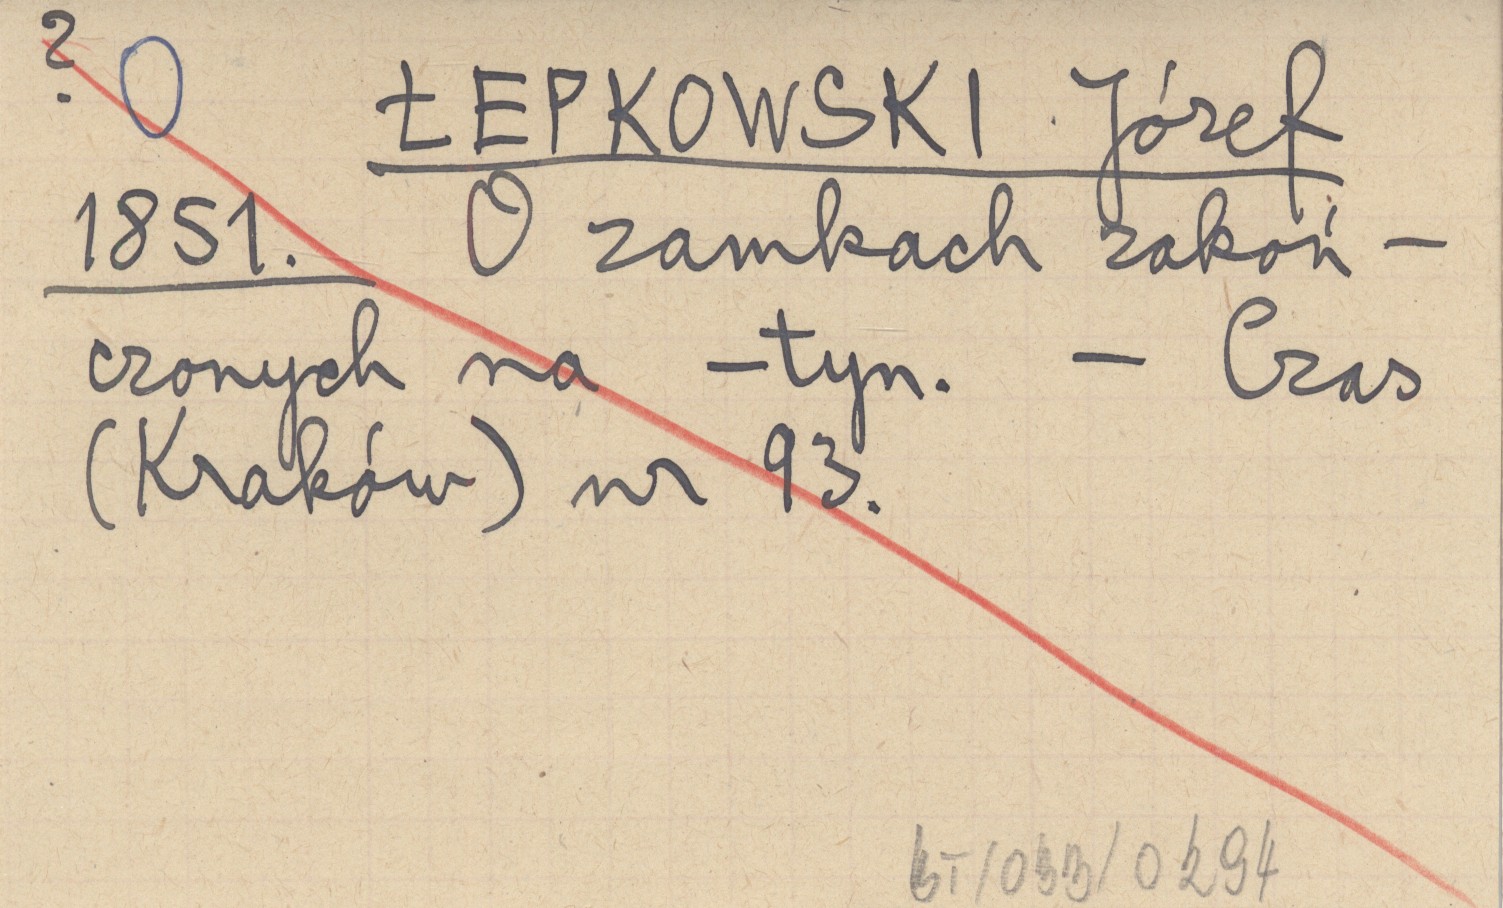 ? O ŁEPKOWSKI Józef
1851. O zamkach zakoń-
czonych na -tyn. - Czas
(Kraków) nr 93.